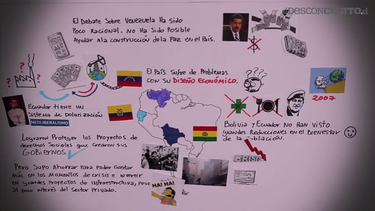 DESCONCIERTO.cl
El Debate Sobre Venezuela Ha Sido
Poco Racional. No Ha Sido Posible
Ayudar A la Construcción de la Paz en el País.
El País Sufre de Problemas
con su Diseño Económico.
2007
Ecuador tiene un
Sistema de Dolarización
NEOLIBERALISMO
Lograron Proteger los Proyectos de
derechos Sociales que Crearon sus
GOBIERNOS
Bolivia y Ecuador No Han Visto
grandes Reducciones en el Bienestar
de la Población.
CRISIS
Pero Supo Ahorrar Para Poder Gastar
Más en los Momentos de Crisis e Invertir
en grandes Proyectos de Infraestructura, pese
al poco interés del Sector Privado.
HA! HA!